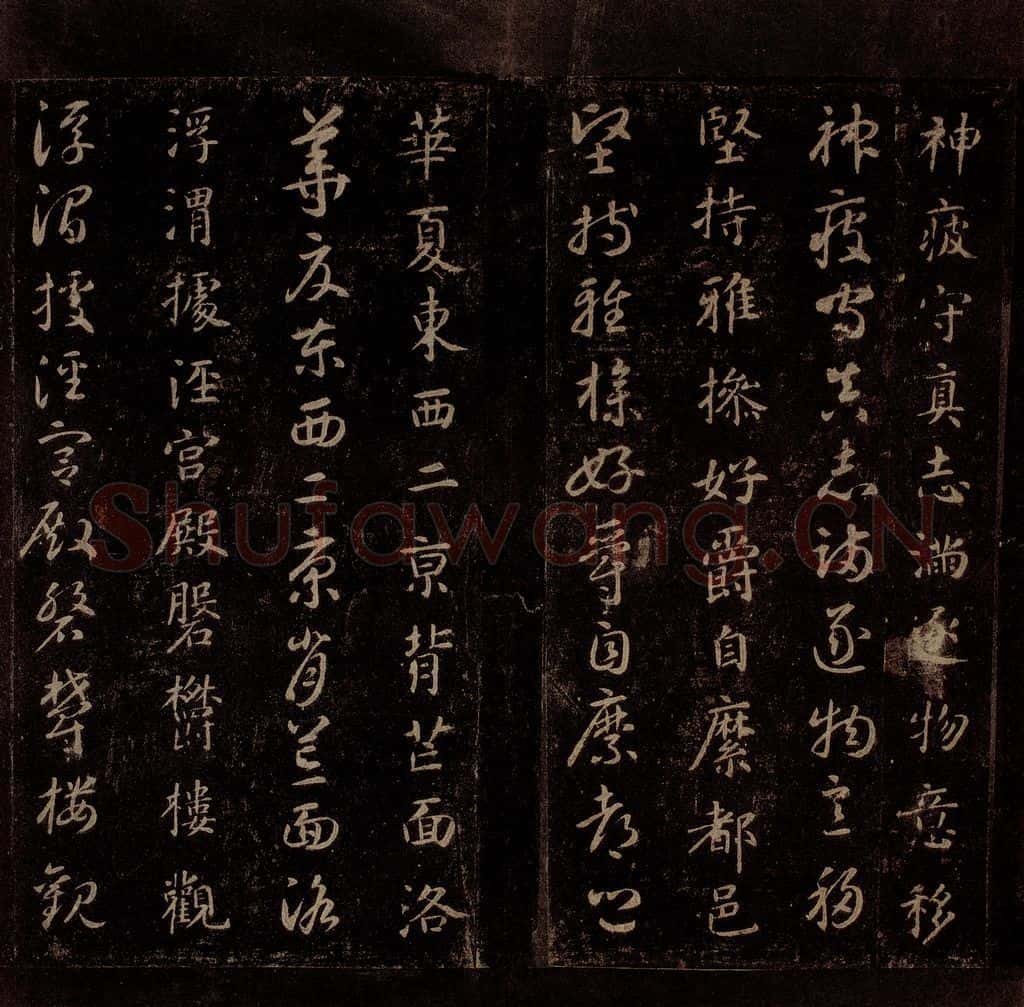 神疲守真志滿逐物意移
神疲守真志滿逐物意移
堅持雅操好爵自縻都邑
堅持雅操好爵自縻都邑
華夏東西二亰背芒面洛
華夏東西二京背芒面洛
浮渭據涇宮殿磐鬱樓觀
浮渭據涇宮殿磐鬱樓觀
Shufawang.CN